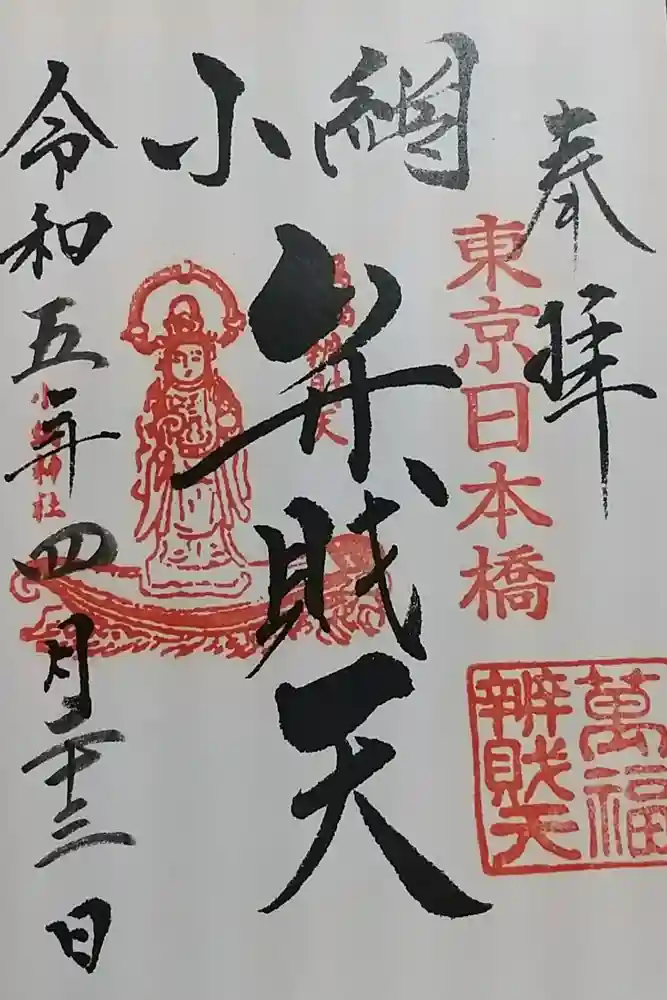 奉拝
東京日本橋
小網
弁財天
萬福辨財天
小網神社
令和五年四月二十三日
萬福
辨財天